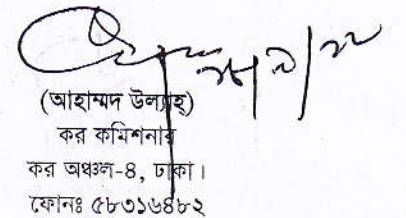 (আহাম্মদ উল্যাহ্)
কর কমিশনার
কর অঞ্চল-৪, ঢাকা।
ফোনঃ ৫৮৩১৬৪৮২